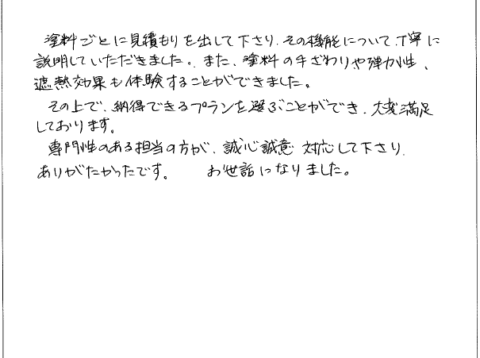 塗料ごとに見積もりを出して下さり、その機能について、丁寧に
説明していただきました。また、塗料の手ざわりや弾力性、
遮熱効果も体験することができました。
その上で、納得できるプランを選ぶことができ、大変満足
しております。
専門性のある担当の方が、誠心誠意 対応して下さり、
ありがたかったです。 お世話になりました。